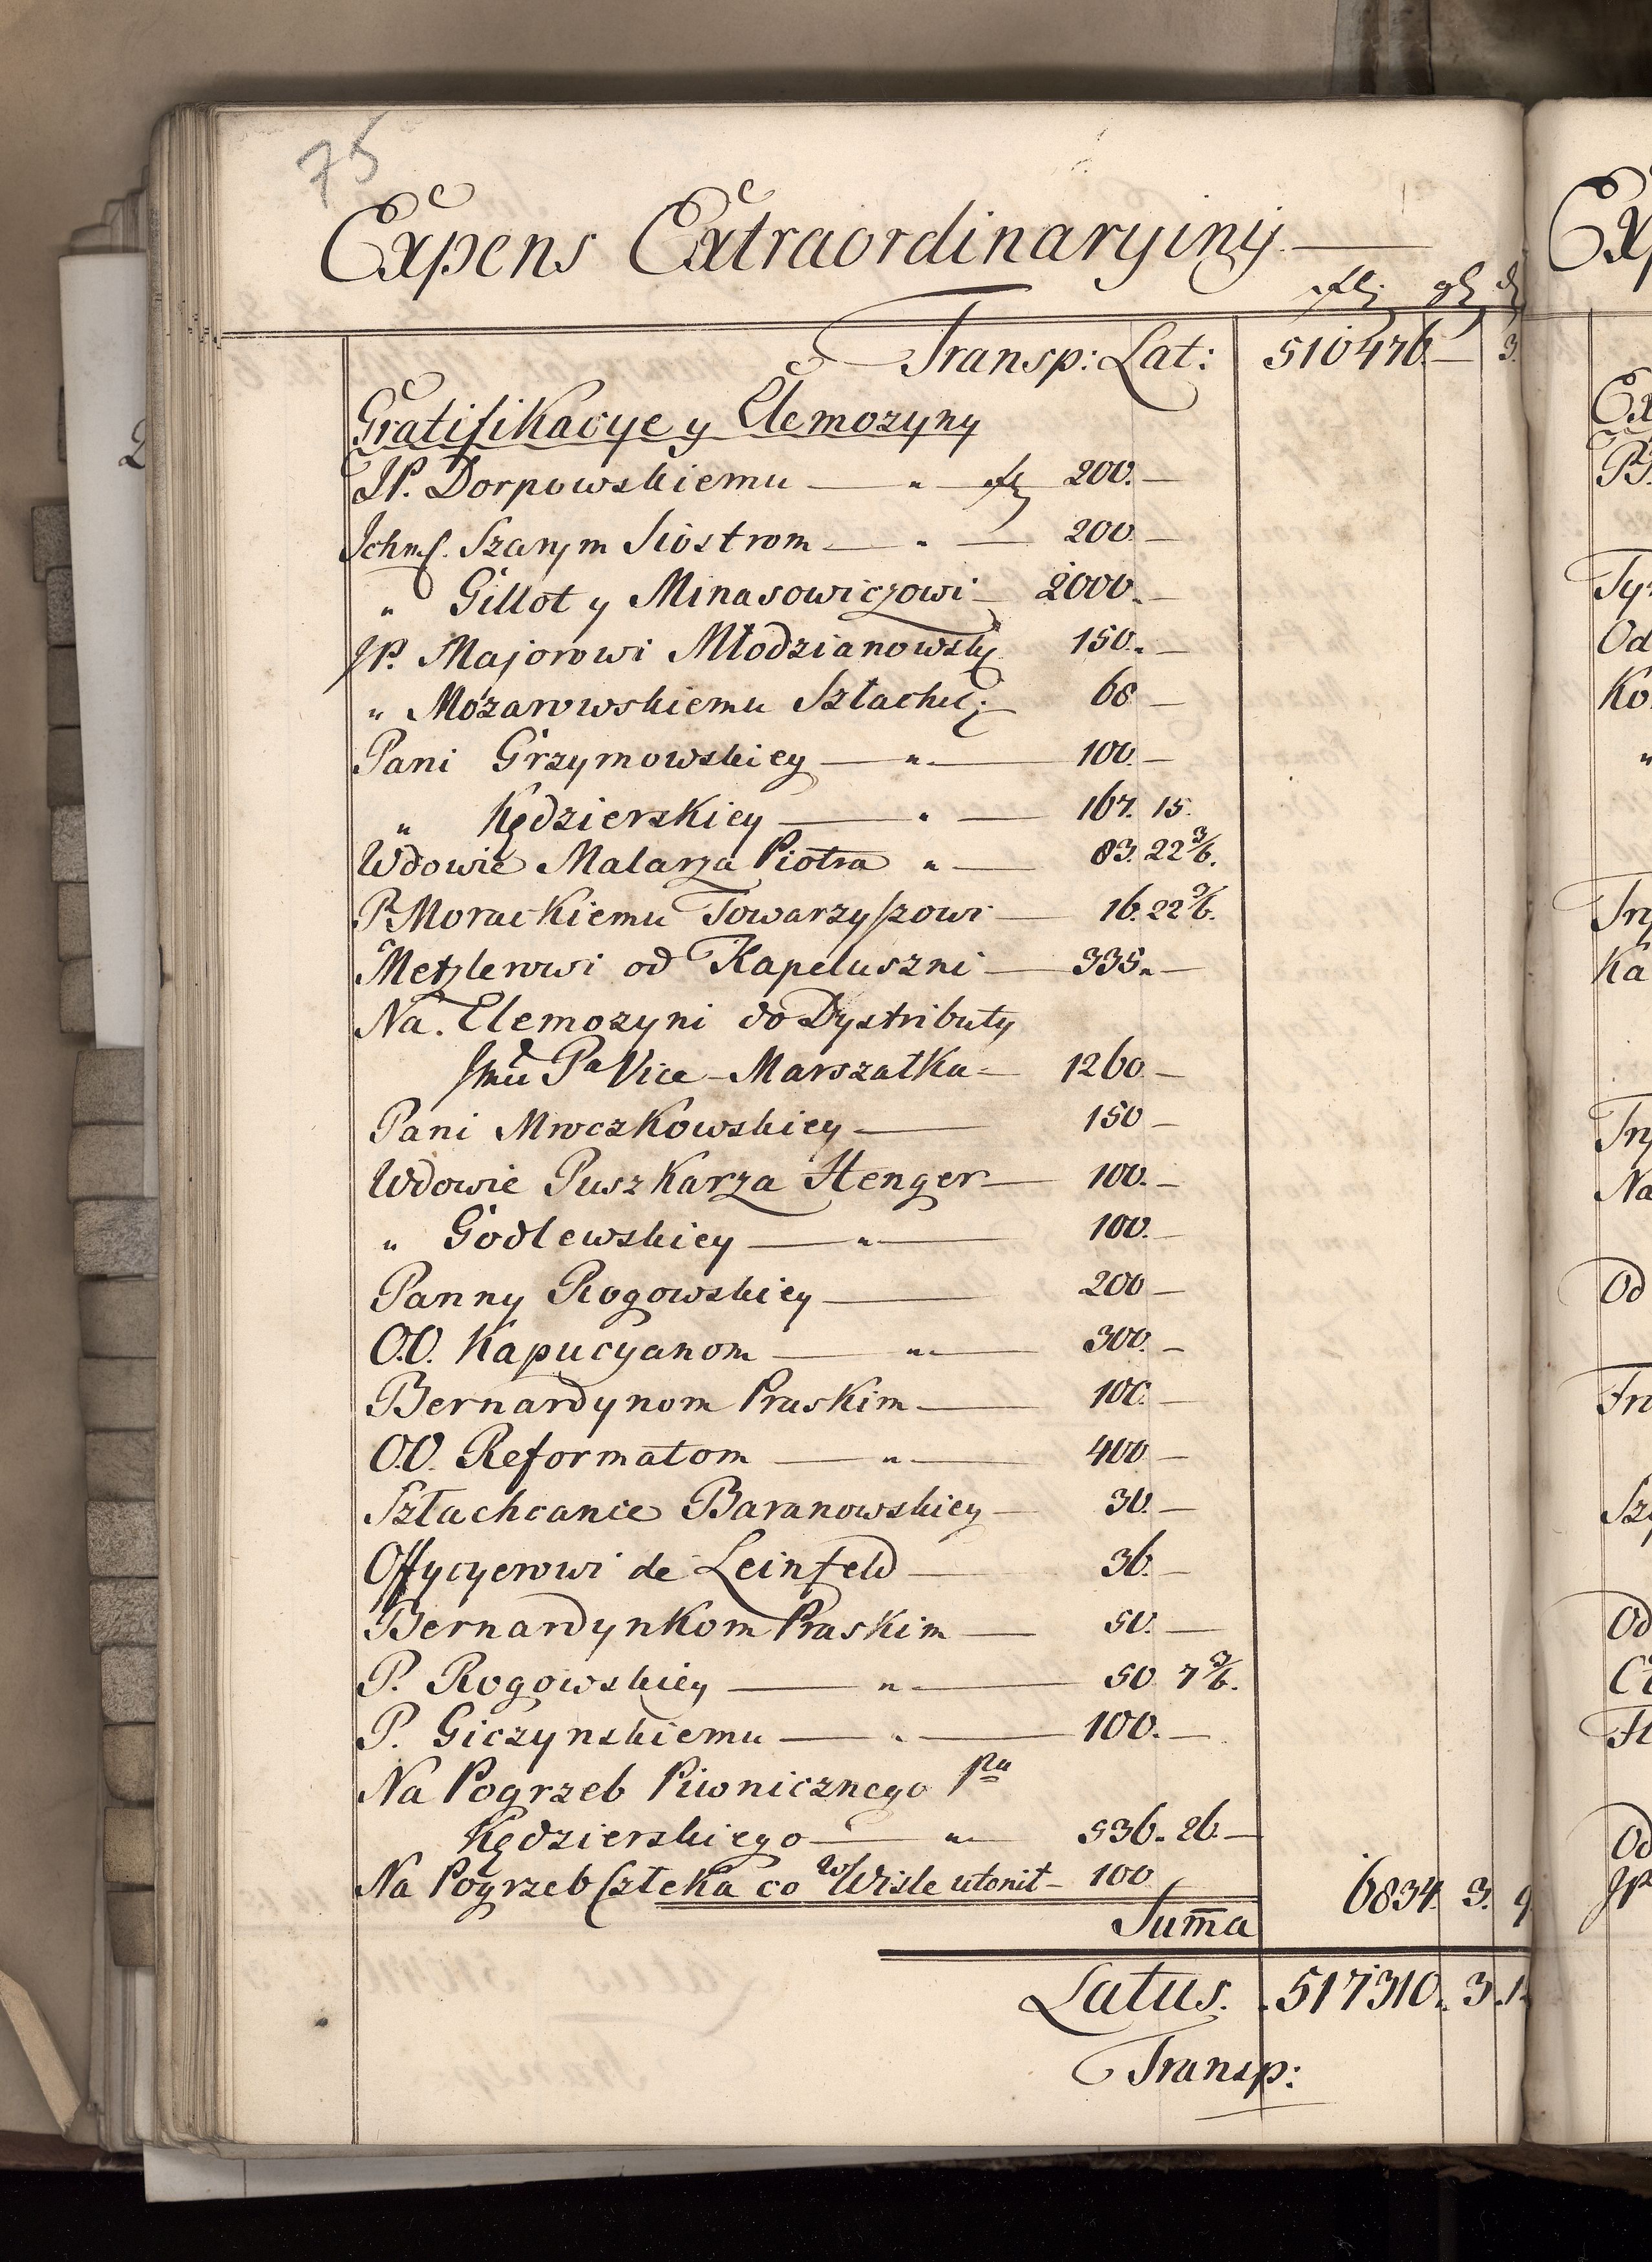 75
Expens Extraordinaryiny
fl: gl d
Transp: Lat: 510476. — 3.
Gratifikacye y Elemozyny
JP. Dorpowskiemu — " — fl 200. —
Ichms. Szarym Siostrom — " — 200 —
" Gillot y Minasowiczowi — 2000. —
JP. Majorowi Młodzianowsk 150. —
" Możarowskiemu Szlachci: — 68 —
Pani Grzymowskiey — " — 100. —
" Kędzierskiey — " — 167. 15.
Wdowie Malarza Piotra " — 83. 22 3/6.
P. Morackiemu Towarzyszowi — 16. 22 3/6.
Metzlerowi od Kapeluszni — 335. —
Na. Elemozyni do Dystributy
Jmu Pa Vice-Marszałka — 1260 —
Pani Mroczkowskiey — 150 —
Wdowie Puszkarza Henger — 100. —
" Godlewskiey — " — 100. —
Panny Rogowskiey — 200 —
O.O. Kapucyanom — " — 300. —
Bernardynom Praskim — 100. —
O.O. Reformatom — " — 400 —
Szlachcance Baranowskiey — 30. —
Offycyerowi de Leinfeld — 36. —
Bernardynkom Praskim — 50. —
P. Rogowskiey — " — 50 7 3/6.
P. Giczynskiemu — " — 100. —
Na Pogrzeb Piwnicznego Pa
Kędzierskiego — " — 536. 26. —
Na Pogrzeb Człeka co w Wisle utonił — 100
Suma 6834. 3. 9
Latus. 517310. 3. 1
Transp:
Ex